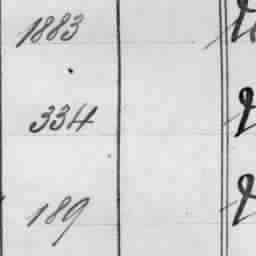 1883
334
189